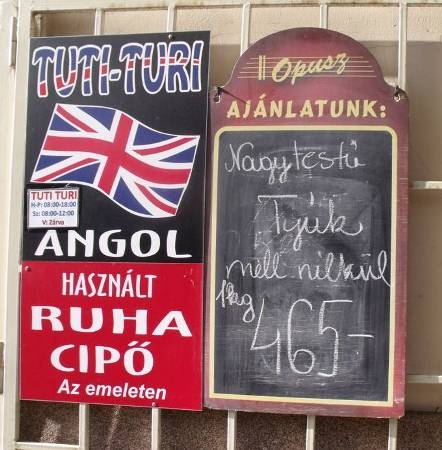 TUTI-TURI
TUTI TURI
H-P: 08:00-18:00
Sz: 08:00-12:00
V: Zárva
ANGOL
HASZNÁLT
RUHA
CIPŐ
Az emeleten
Opusz
AJÁNLATUNK:
Nagytestű
Tyúk
mell nélkül
1kg
465-